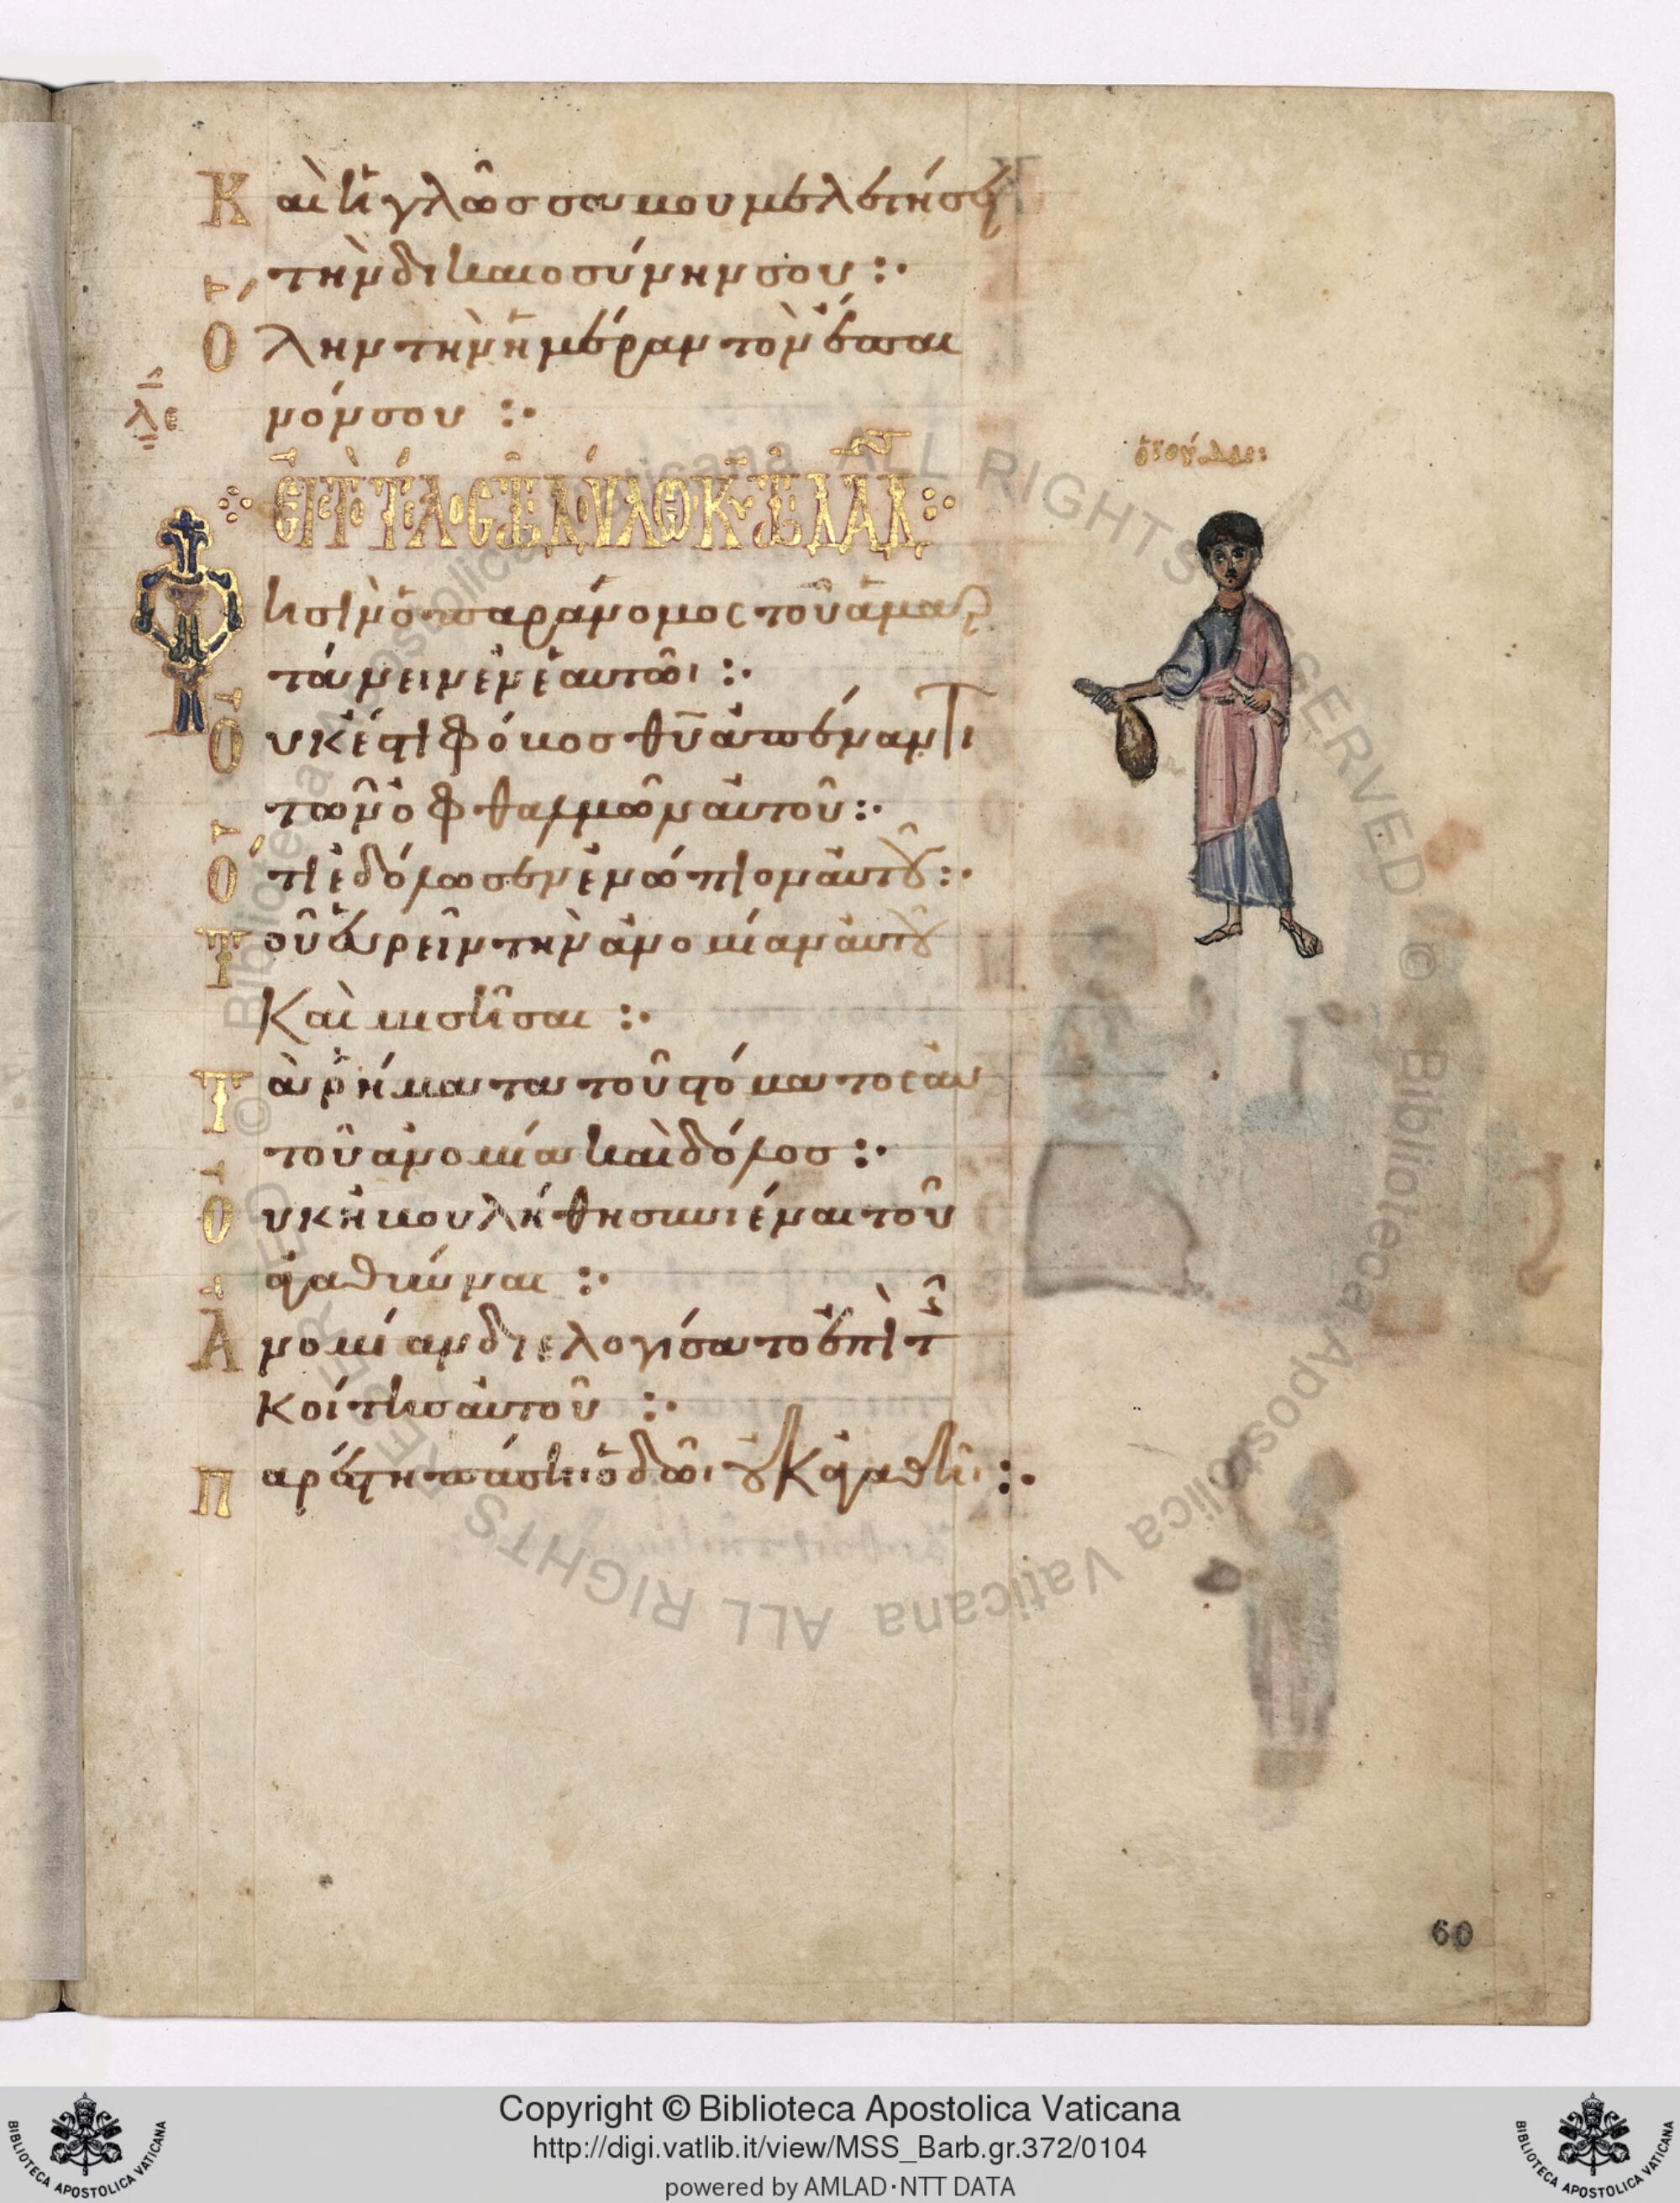 Καὶ ἡ γλῶσσα μου μελετήσει
τὴν δικαιοσύνην σου :·
Ὅλην τὴν ἡμέραν τὸν ἔπαι
νόν σου :·
λε
ὁ ϊούδας:
Εἰς τὸ τέλος τῶ δούλω κυ τῶ δαδ :·
Φησὶν ὁ παράνομος τοῦ ἁμαρ
τάνειν ἐν ἑαυτῶι :·
Οὐκ ἔστι φόβος θυ ἀπέναντι
τῶν ὀφθαλμῶν αὐτοῦ :·
Ὅτι ἐδόλωσεν ἐνώπιον αὐτοῦ :·
Τοῦ εὑρεῖν τὴν ἀνομίαν αὐτοῦ
καὶ μισῆσαι :·
Τὰ ῥήματα τοῦ στόματος αὐ
τοῦ ἀνομία καὶ δόλος :·
Οὐκ ἠβουλήθη συνιέναι τοῦ
ἀγαθύναι :·
Ἀνομίαν διελογίσατο ἐπὶ τῆς
κοίτης αὐτοῦ :·
Παρέστη πάσηι ὁδῶι οὐκ ἀγαθῆι :·
60
© Biblioteca Apostolica Vaticana ALL RIGHTS RESERVED © Biblioteca Apostolica Vaticana ALL RIGHTS RESERVED
Copyright © Biblioteca Apostolica Vaticana
http://digi.vatlib.it/view/MSS_Barb.gr.372/0104
powered by AMLAD·NTT DATA
BIBLIOTECA APOSTOLICA VATICANA
BIBLIOTECA APOSTOLICA VATICANA